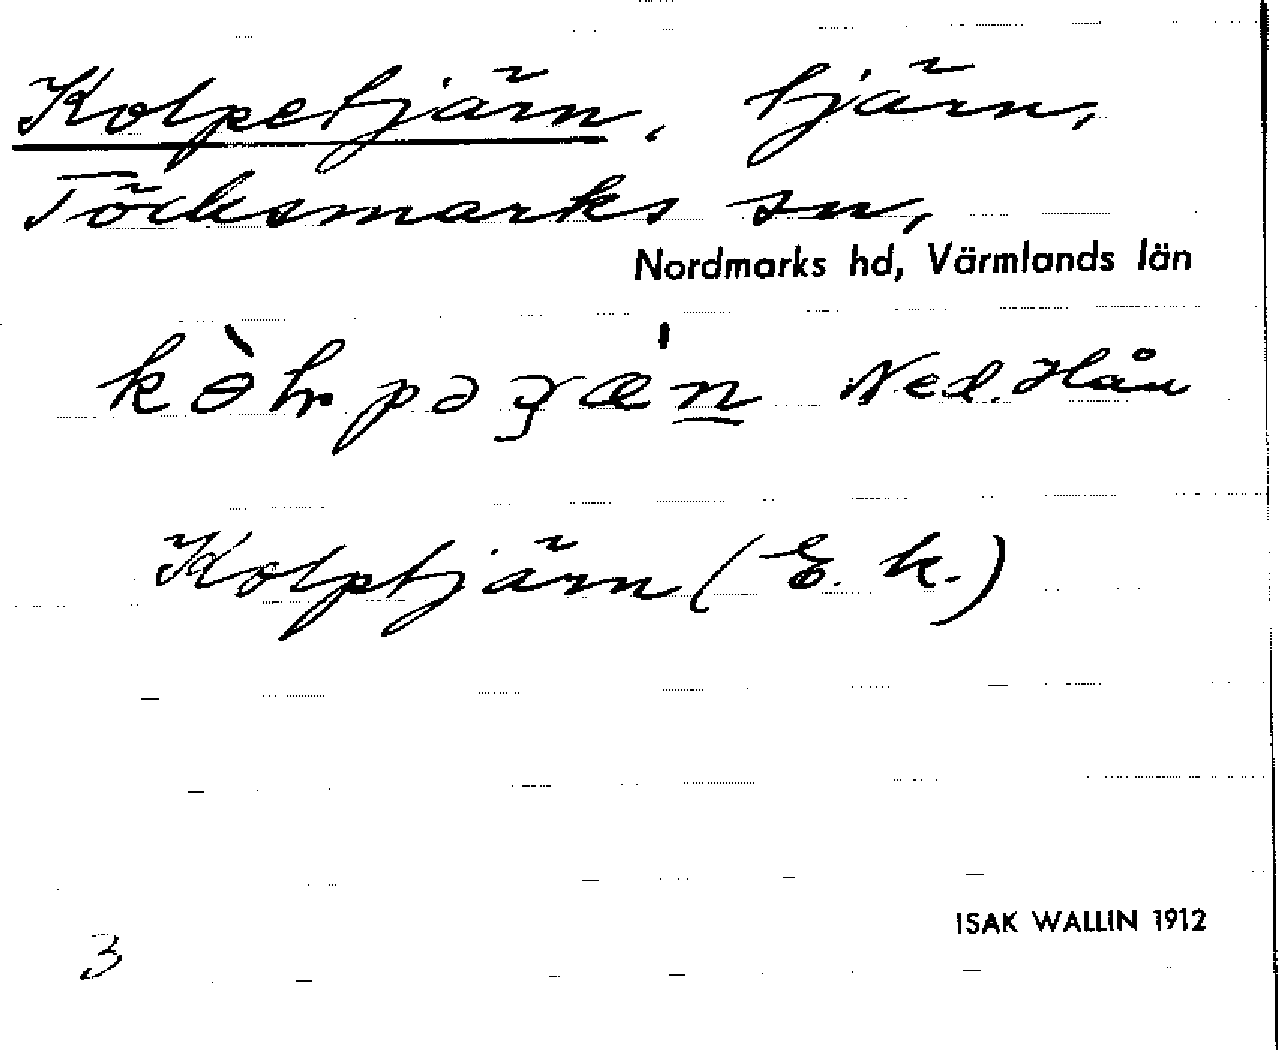 Kolpetjärn, tjärn,
Töcksmarks sn,
Nordmarks hd, Värmlands län
Ned. Hån
Kolptjärn (E. k.)
ISAK WALLIN 1912
3